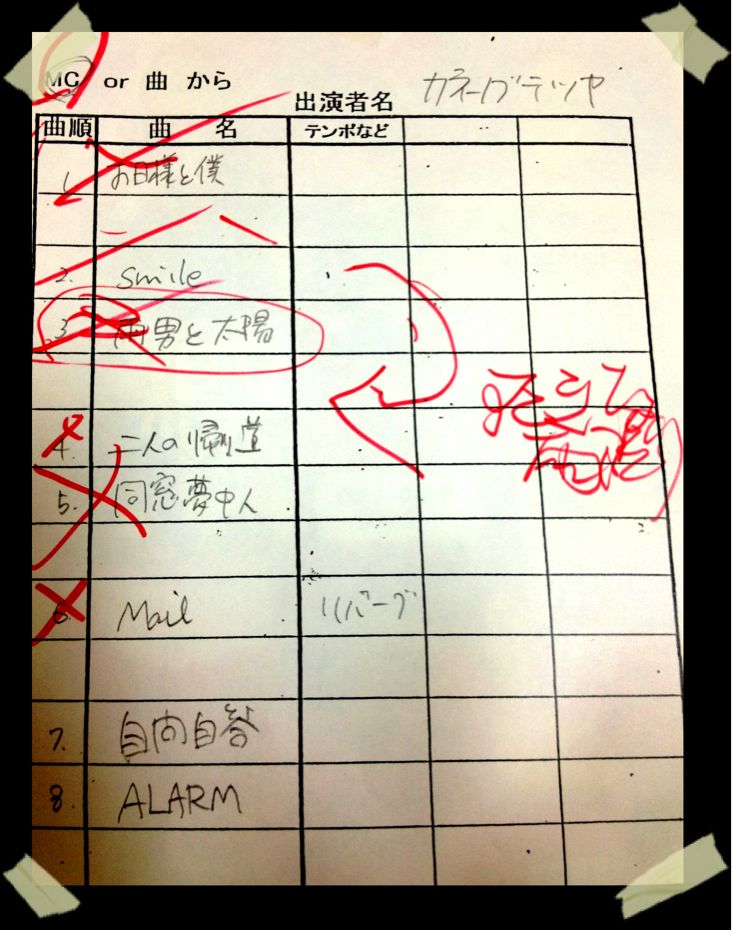 MC or 曲 から
出演者名 カネーグテツヤ
曲順 曲 名 テンポなど
1. お日様と僕
2. smile
3 雨男と太陽
4. 二人の帰り道
5. 同窓夢中人
6 Mail リバーブ
7. 自問自答
8. ALARM